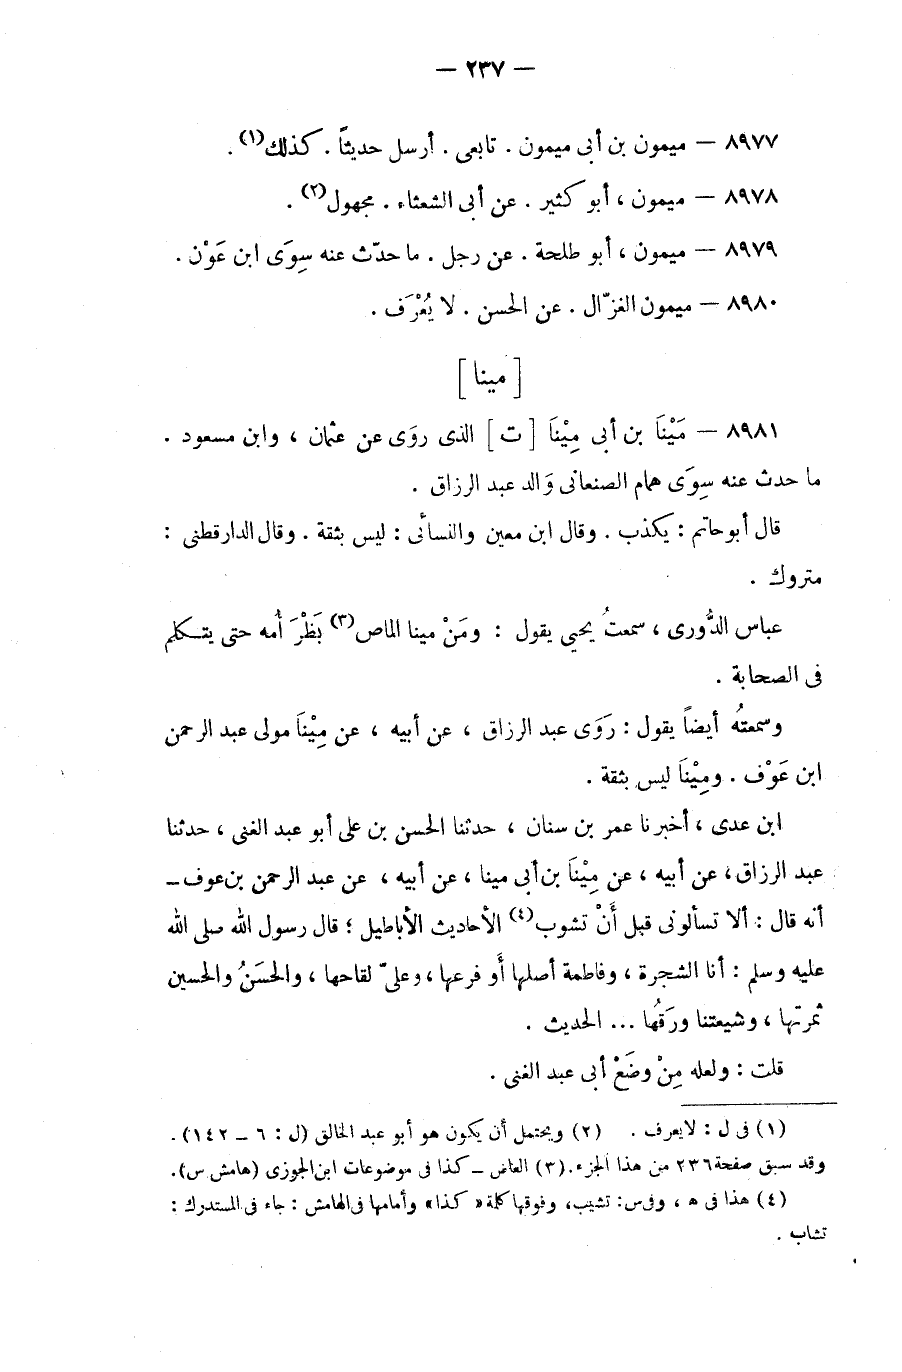 — ٢٣٧ —
٨٩٧٧ — ميمون بن أبى ميمون . تابعى . أرسل حديثاً . كذلك(١) .
٨٩٧٨ — ميمون ، أبو كثير . عن أبى الشعثاء . مجهول(٢) .
٨٩٧٩ — ميمون ، أبو طلحة . عن رجل . ما حدّث عنه سِوَى ابن عَوْن .
٨٩٨٠ — ميمون الغزّال . عن الحسن . لا يُعْرَف .
[ مينا ]
٨٩٨١ — مَيْنَا بن أبى مِيْنَا [ ت ] الذى روَى عن عثمان ، وابن مسعود .
ما حدث عنه سِوَى همام الصنعانى وَالد عبد الرزاق .
قال أبو حاتم : يكذب . وقال ابن معين والنسأئى : ليس بثقة . وقال الدارقطنى :
متروك .
عباس الدُّورى ، سمعتُ يحيى يقول : ومَنْ مينا الماص(٣) بَظْرَ أمه حتى يتكلم
فى الصحابة .
وسمعتهُ أيضاً يقول : رَوَى عبد الرزاق ، عن أبيه ، عن مِيْنَا مولى عبد الرحمن
ابن عَوْف . ومِيْنَا ليس بثقة .
ابن عدى ، أخبرنا عمر بن سنان ، حدثنا الحسن بن على أبو عبد الغنى ، حدثنا
عبد الرزاق ، عن أبيه ، عن مِيْنَا بن أبى مينا ، عن أبيه ، عن عبد الرحمن بن عوف —
أنه قال : ألا تسألونى قبل أَنْ تشوب(٤) الأحاديث الأباطيل ؛ قال رسول الله صلى الله
عليه وسلم : أنا الشجرة ، وفاطمة أصلها أَو فرعها ، وعلىّ لقاحها ، والحسَنُ والحسين
ثمرتها ، وشيعتنا ورَقُها ... الحديث .
قلت : ولعله مِنْ وضَعْ أبى عبد الغنى .
(١) فى ل : لا يعرف . (٢) ويحتمل أن يكون هو أبو عبد الخالق (ل : ٦ — ١٤٢) .
وقد سبق صفحة ٢٣٦ من هذا الجزء . (٣) العاض — كذا فى موضوعات ابن الجوزى (هامش س) .
(٤) هذا فى ه ، وفى س : تشيب ، وفوقها كلمة « كذا » وأمامها فى الهامش : جاء فى المستدرك :
تشاب .